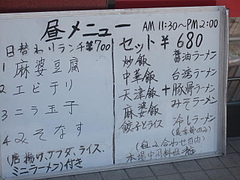 昼メニュー
AM 11:30〜PM 2:00
日替わりランチ¥700
1 麻婆豆腐
2 エビチリ
3 ニラ玉子
4 みそなす
(唐揚、サラダ、ライス、
ミニラーメン)付き
セット¥680
炒飯 醤油ラーメン
中華飯 台湾ラーメン
天津飯 + 豚骨ラーメン
麻婆飯 みそラーメン
餃子とライス 冷しラーメン
(組み合わせ自由)
本場中国料理